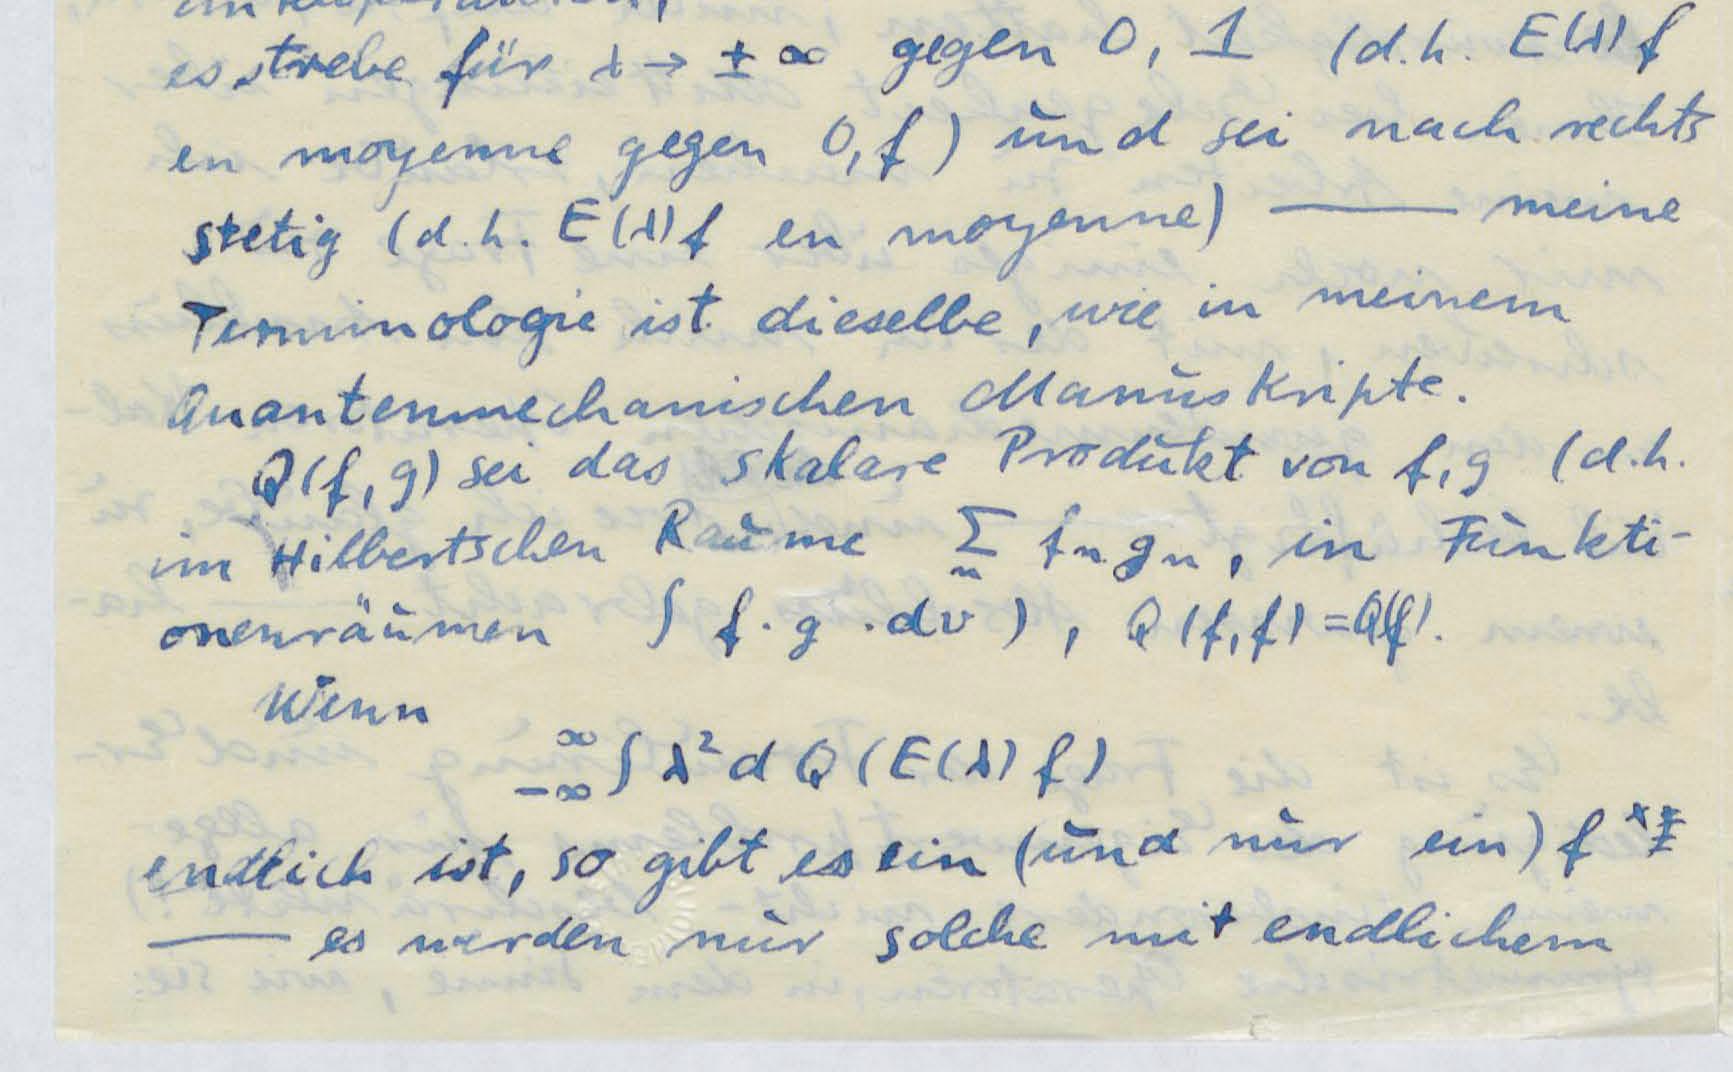 es strebe für λ → ± ∞ gegen 0, 1 (d.h. E(λ)f
en moyenne gegen 0, f) und sei nach rechts
stetig (d.h. E(λ)f en moyenne) —— meine
Terminologie ist dieselbe, wie in meinem
Quantenmechanischen Manuskripte.
Q(f, g) sei das skalare Produkt von f, g (d.h.
im Hilbertschen Raume ∑ₙ fₙ gₙ, in Funkti-
onenräumen ∫ f · g · dv), Q(f, f) = Q(f).
Wenn
-∞^∞ ∫ λ² d Q(E(λ) f)
endlich ist, so gibt es ein (und nur ein) f
—— es werden nur solche mit endlichem